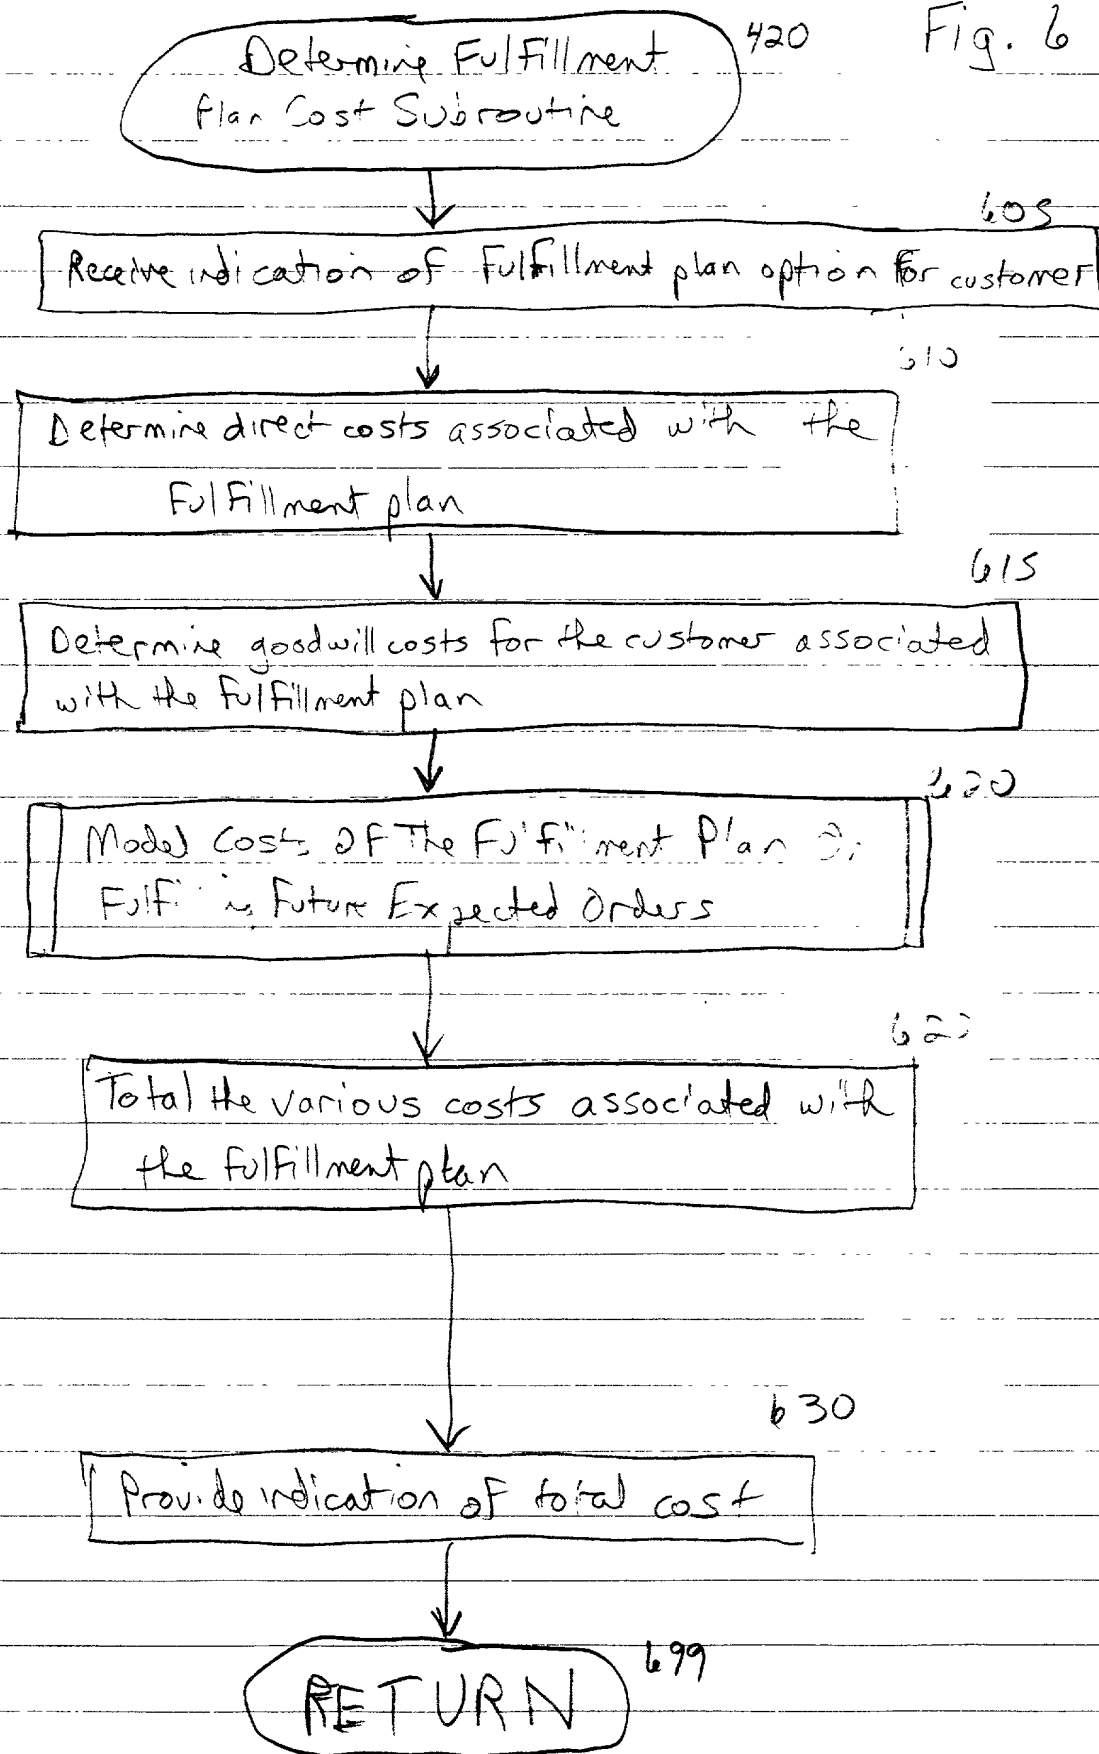 420
Fig. 6
Determine Fulfillment
Plan Cost Subroutine
605
Receive indication of Fulfillment plan option for customer
610
Determine direct costs associated with the
Fulfillment plan
615
Determine goodwill costs for the customer associated
with the fulfillment plan
620
Model Costs Of The Fulfillment Plan
Future Expected Orders
Total the various costs associated with
the fulfillment plan
630
Provide indication of total cost
RETURN
699